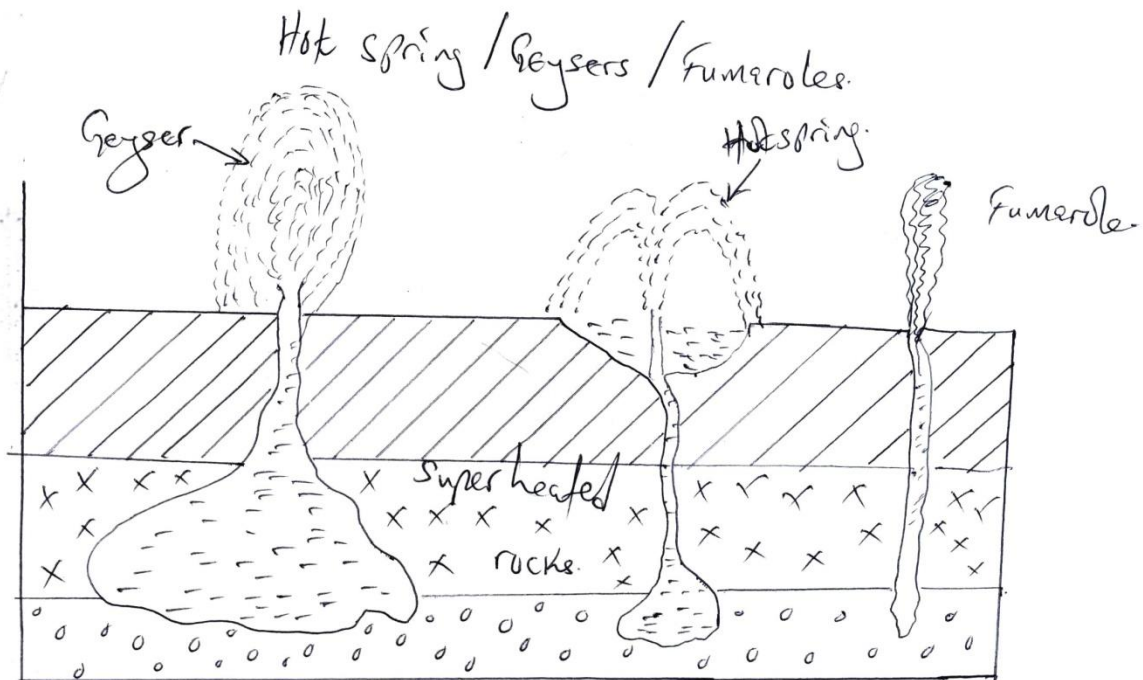 Hot spring / Geysers / Fumaroles.
Geyser
Hotspring.
Fumarole.
Super heated
rocks.